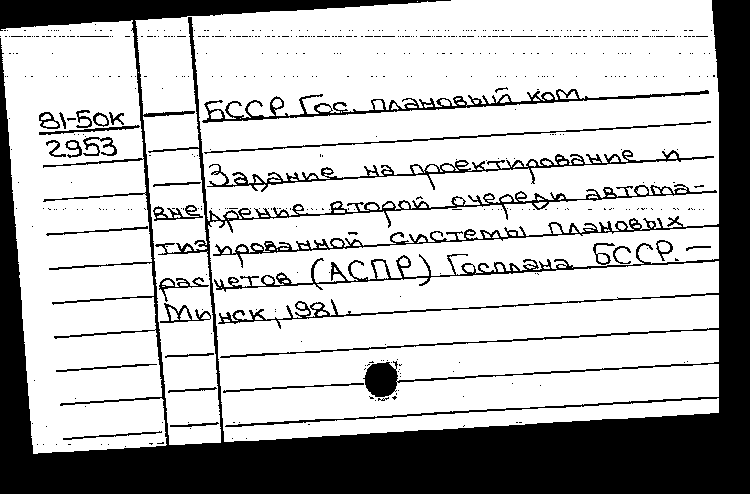 81-50к
2953
БССР. Гос. плановый ком.
Задание на проектирование и
внедрение второй очереди автома-
тизированной системы плановых
расчетов (АСПР) Госплана БССР. —
Минск, 1981.